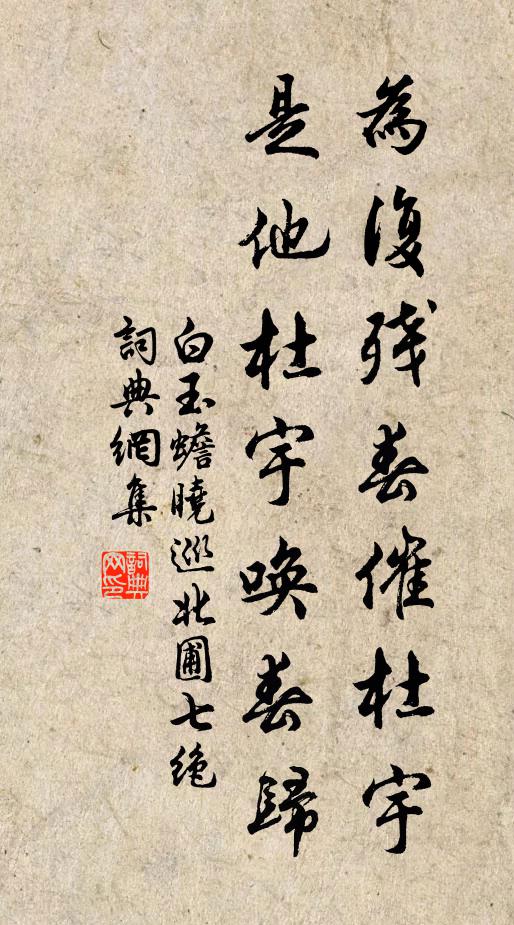 為復残春催杜宇
是他杜宇喚春歸
白玉蟾曉巡北圃七絶
詞典網集
詞典网印